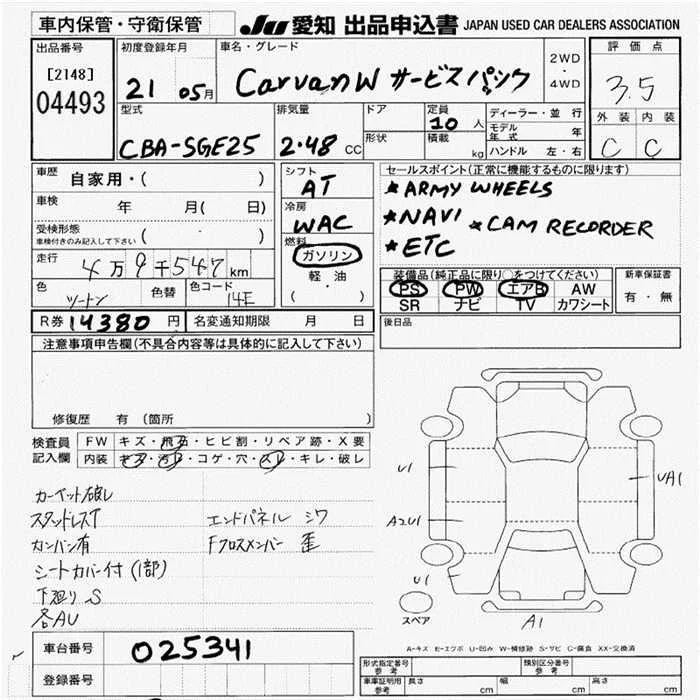 車内保管・守衛保管
JU 愛知 出品申込書 JAPAN USED CAR DEALERS ASSOCIATION
出品番号
[2148]
04493
初度登録年月
21 05月
車名・グレード
CarvanW サービスパック
2WD
・
4WD
評価点
3.5
外装 内装
C C
型式
CBA-SGE25
排気量
2.48 CC
ドア
形状
定員
10 人
積載
kg
ディーラー・並行
モデル年式 年
ハンドル 左・右
車歴 自家用・( )
車検 年 月( 日)
受検形態
車検付きのみ記入して下さい ( )
走行
4万9千547km
色
ツートン
色替
色コード
14E
シフト
AT
冷房
WAC
燃料
ガソリン
軽・油
( ・ )
セールスポイント(正常に機能するものに限ります)
★ARMY WHEELS
★NAVI ★CAM RECORDER
★ETC
装備品(純正品に限り○をつけてください)
PS PW エアB AW
SR ナビ TV カワシート
新車保証書
有・無
R券 14380 円
名変通知期限 月 日
後日品
注意事項申告欄(不具合内容等は具体的に記入して下さい)
修復歴 有 (箇所 )
検査員
記入欄
FW キズ・飛石・ヒビ割・リペア跡・X要
内装 キズ・汚レ・コゲ・穴・スレ・キレ・破レ
カーペット破レ
スタッドレスT
カンバン有
シートカバー付(1部)
下廻りS
各AU
エンドパネル シワ
Fクロスメンバー 歪
U1
A2U1
U1
UA1
A1
スペア
A-キズ E-エクボ U-凹み W-補修跡 S-サビ C-腐食 XX-交換済
車台番号 025341
登録番号
形式指定番号
参考
類別区分番号
参考
車庫証明用
参考
長さ cm
幅 cm
高さ cm